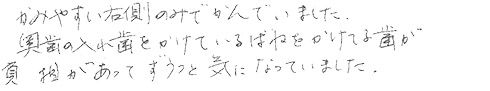 かみやすい右側のみでかんでいました.
奥歯の入れ歯をかけているばねをかけてる歯が
負担があってずうっと気になっていました.